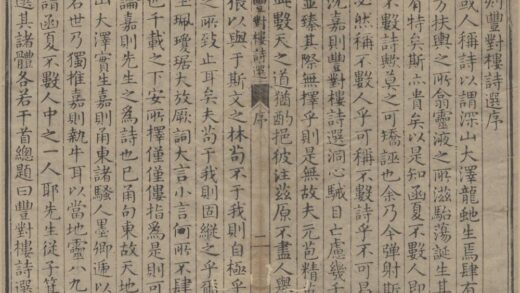 則豐對樓詩選序
或人稱詩以謂深山大澤龍虵生焉肆有
方扶輿之所翕靈液之所滋駘蕩誕生其
有特矣斯亦貴矣以是知函夏不數人即
不數詩歟莫之可矯誣也余乃今彈射斯
必然稱不數人乎可稱不數詩乎不可是
沈嘉則豐對樓詩選洞心駴目亡慮幾千
並臻其際無擇乎則是無故夫元苞精
此數天之道猶酌挹彼注茲原不盡人與
豐對樓詩選 序 二
狼以與于斯文之林茍不于我則自極乎
之所致止耳矣夫茍于我則固縱之乎飛
珮瓊琚大放厥詞大言小言何所不肆
也千載之下安所擇僅僅僂指為是則可
論嘉則先生之為詩也已甬句東故天地
大澤實生嘉則甬東諸騷人墨卿遞以
若世乃獨推嘉則執牛耳以當地靈八九
謂函夏不數人中之一人耶先生徒子等
選其諸體各若干首總題曰豐對樓詩選